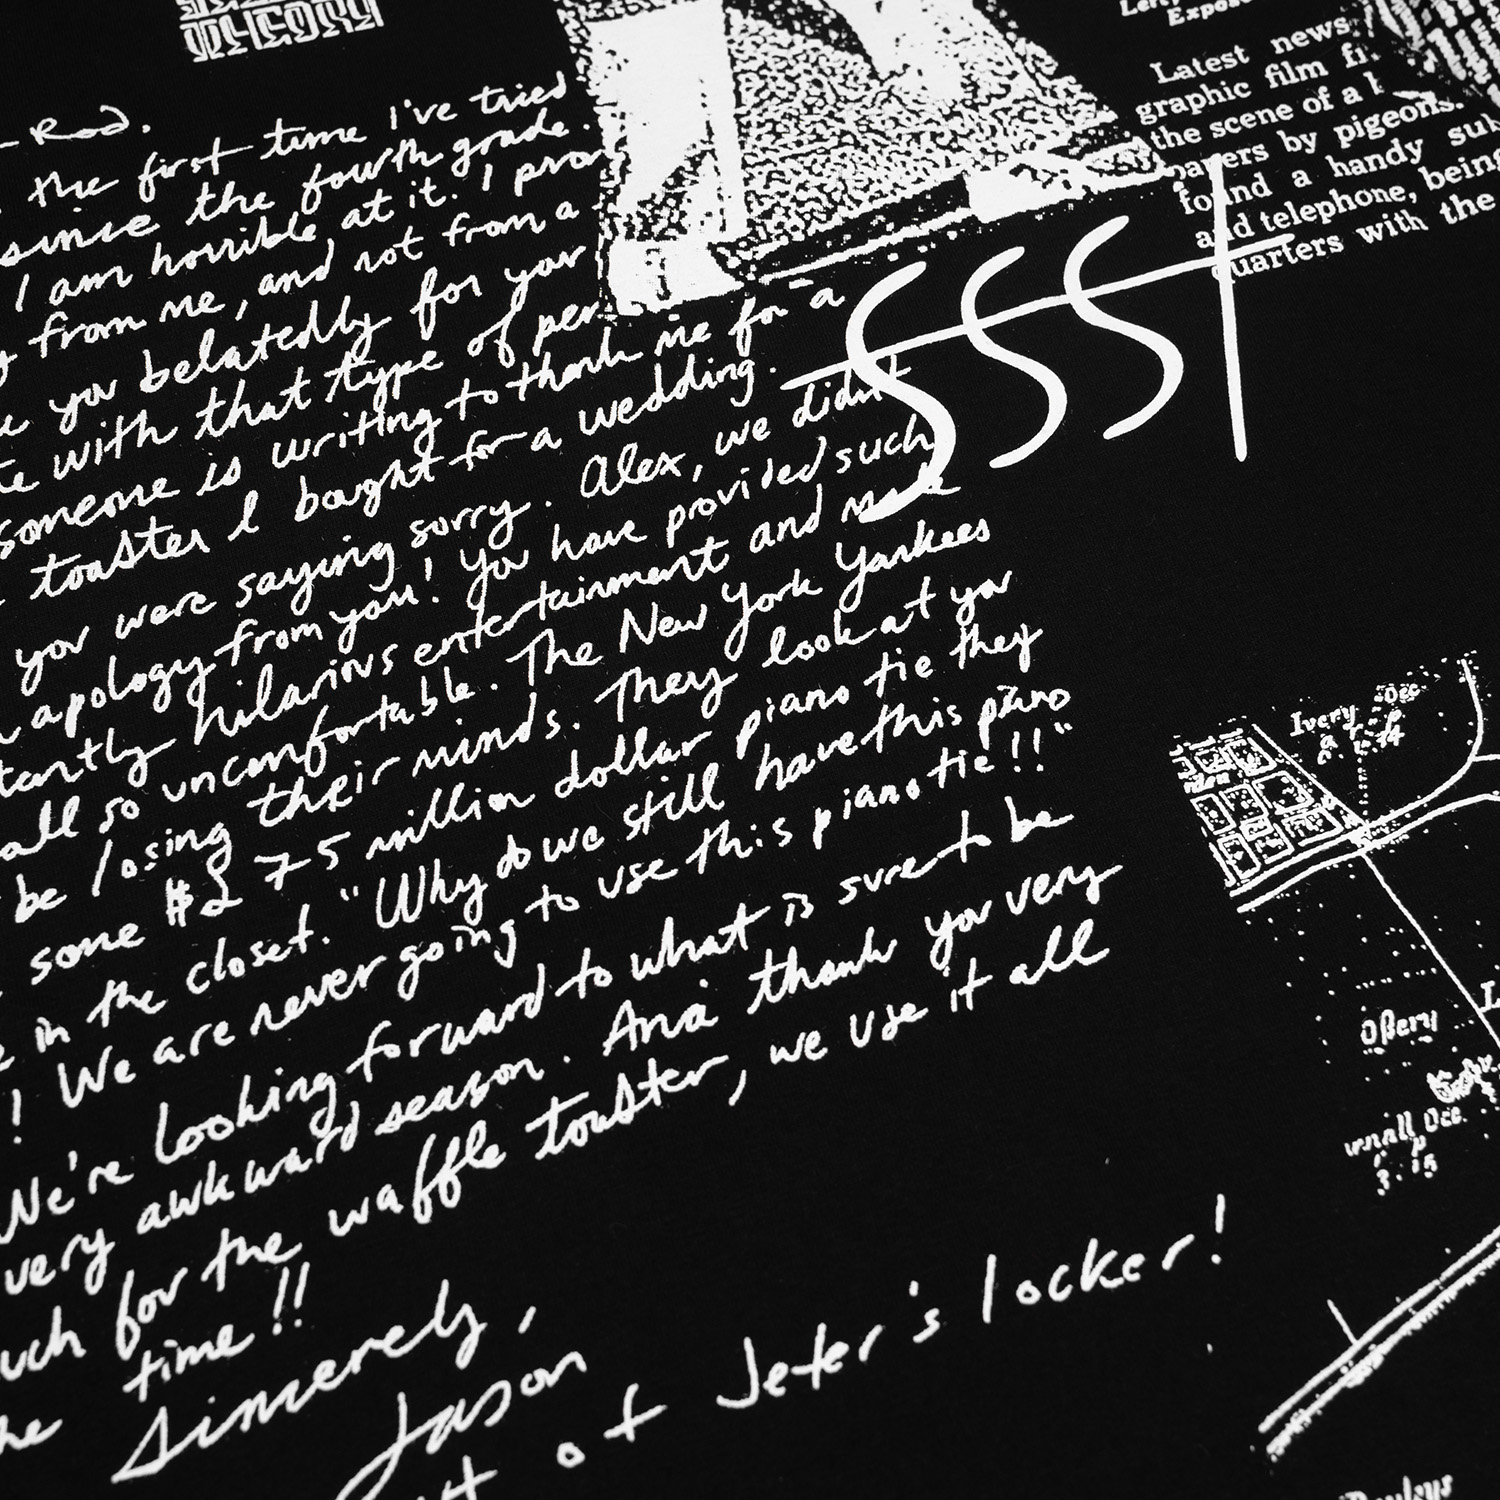 Rod.
the first time I've tried
since the fourth grade.
I am horrible at it. I
from me, and not from a
you belatedly for your
with that type of
someone is writing to thank me for a
toaster I bought for a wedding.
you were saying sorry. Alex, we didn't
apology from you! You have provided such
hilarious entertainment and made
all so uncomfortable. The New York Yankees
be losing their minds. They look at you
some $275 million dollar piano tie they
in the closet. "Why do we still have this piano
! We are never going to use this piano tie!!"
We're looking forward to what is sure to be
very awkward season. And thank you very
for the waffle toaster, we use it all
time!!
Sincerely,
Jason
of Jeter's locker!
SSST
Latest news
graphic film
the scene of a
by pigeons.
found a handy
and telephone, being
quarters with the
Ivery